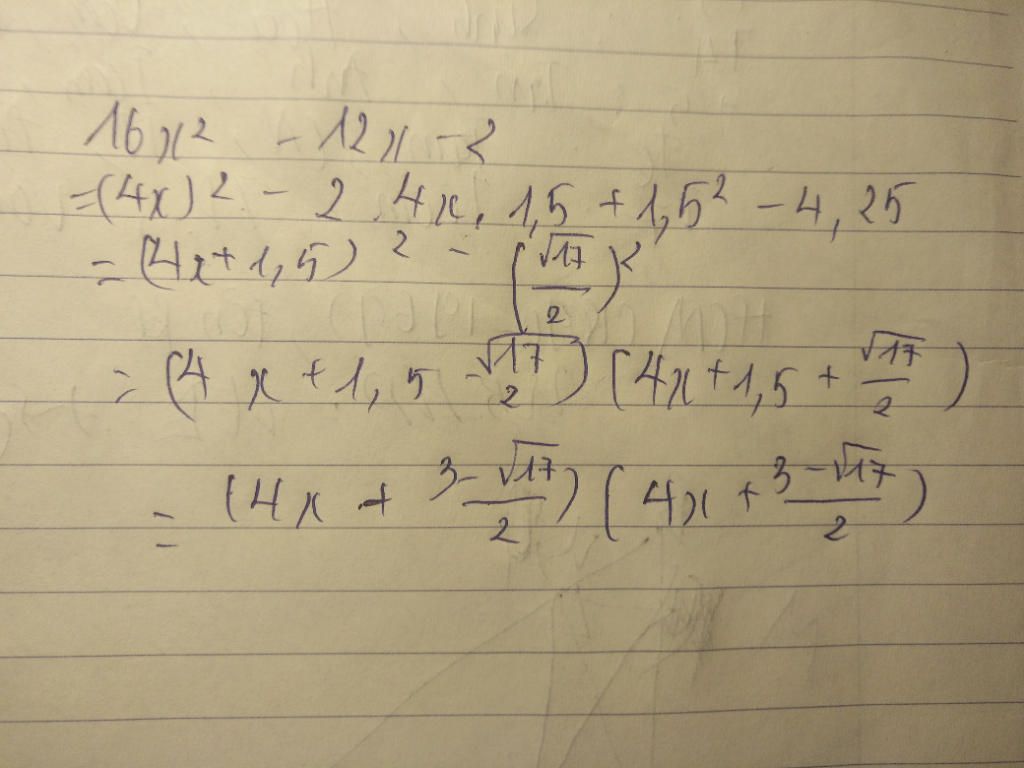 16x² - 12x - 2
= (4x)² - 2 . 4x . 1,5 + 1,5² - 4,25
= (4x + 1,5)² - (√17/2)²
= (4x + 1,5 - √17/2) (4x + 1,5 + √17/2)
= (4x + (3 - √17)/2) (4x + (3 - √17)/2)